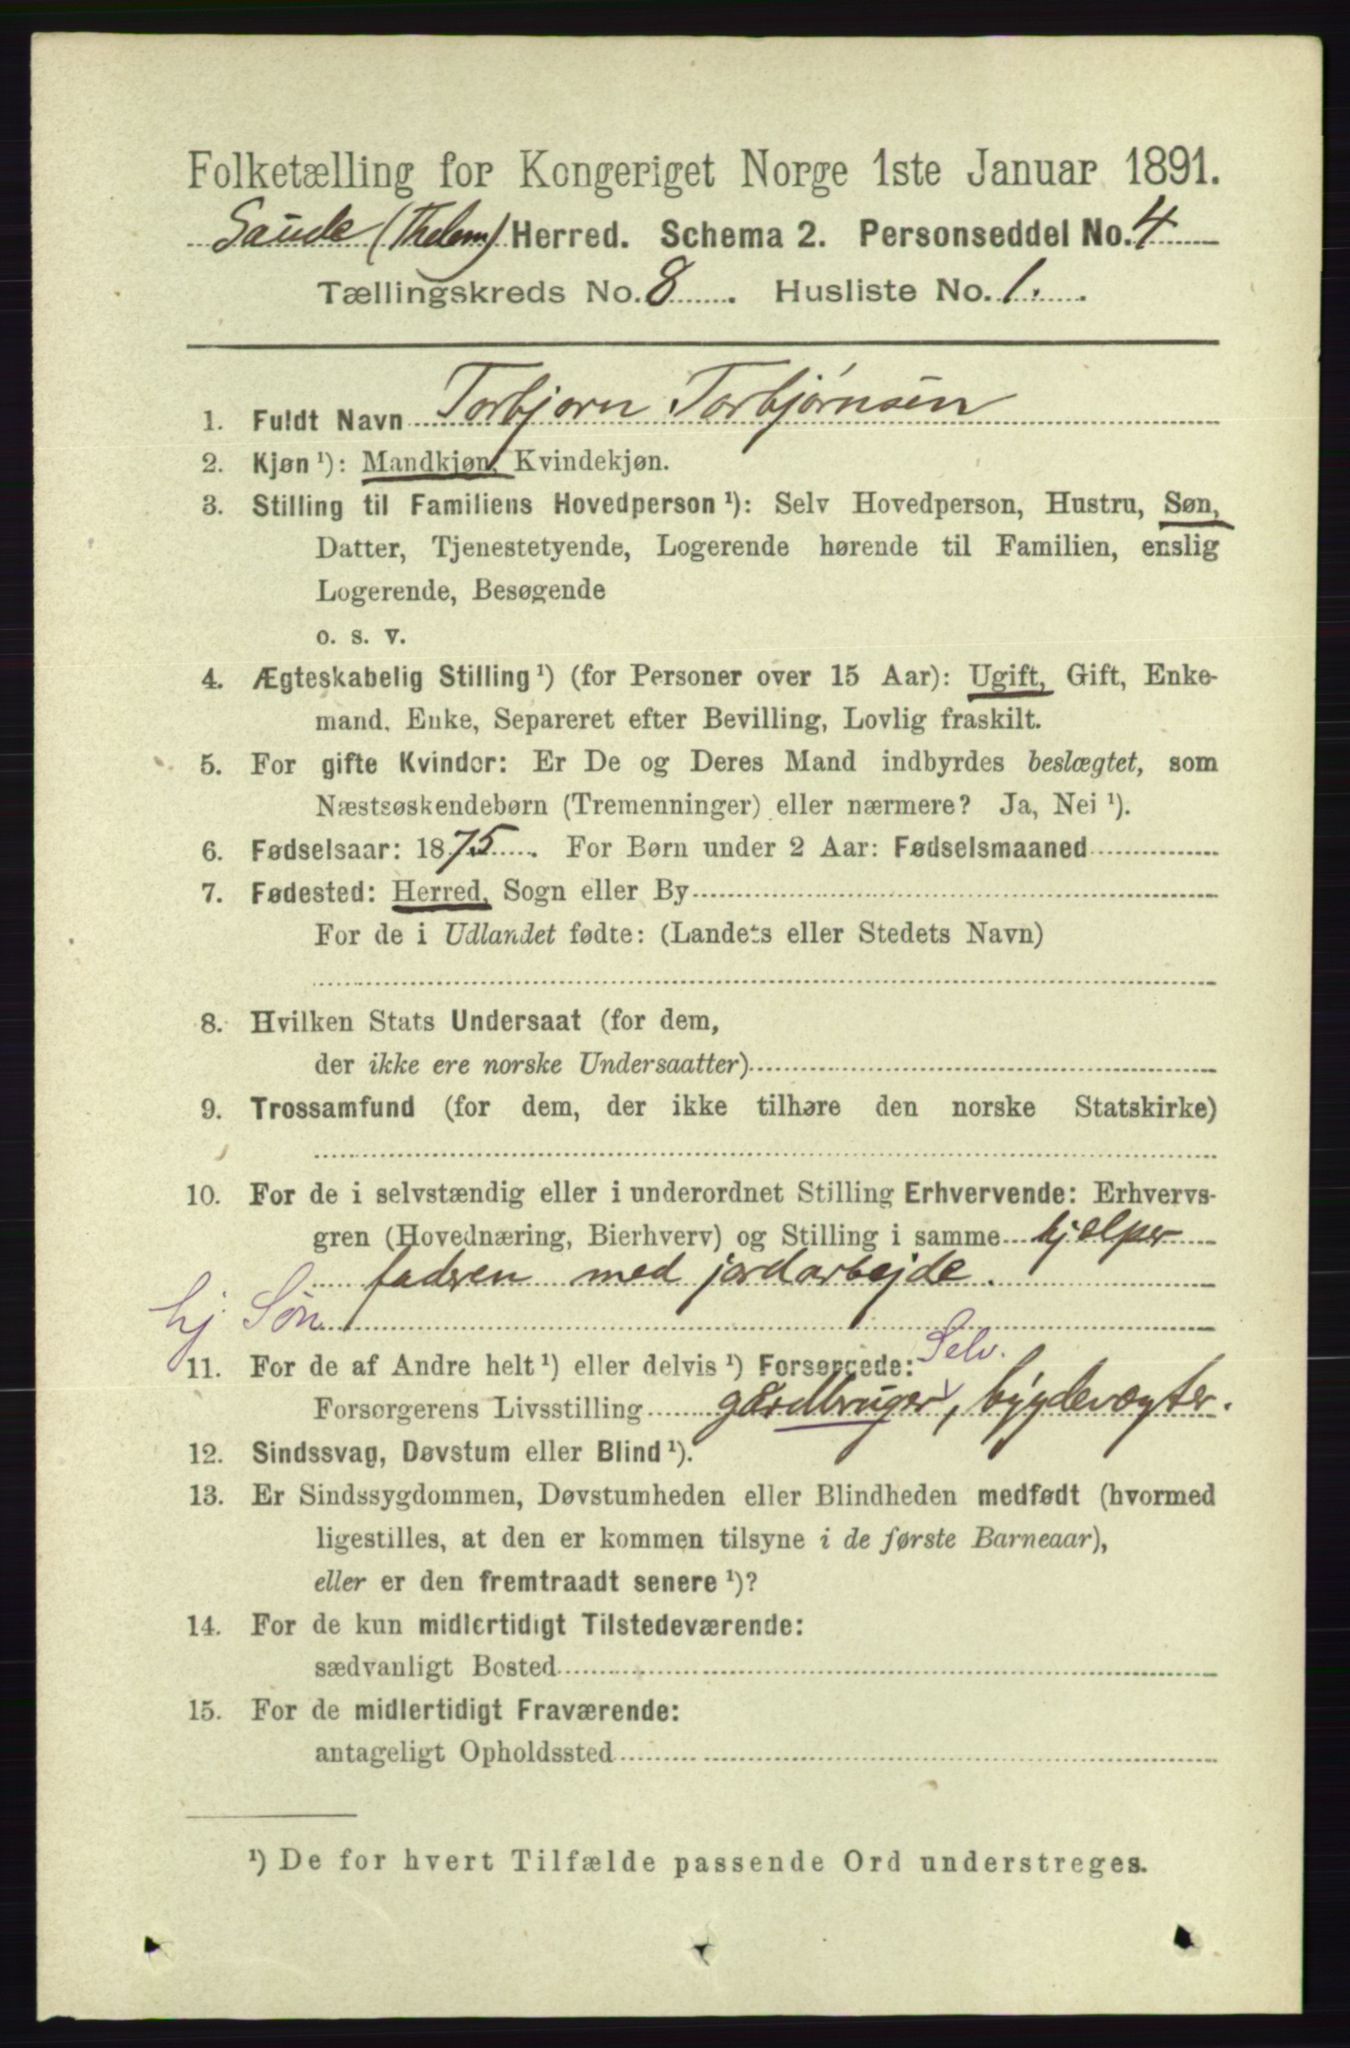 Folketælling for Kongeriget Norge 1ste Januar 1891.
Saude (Thelem) Herred. Schema 2. Personseddel No. 4
Tællingskreds No. 8. Husliste No. 1.
1. Fuldt Navn Torbjorn Torbjørnsen
2. Kjøn ¹): Mandkjøn, Kvindekjøn.
3. Stilling til Familiens Hovedperson ¹): Selv Hovedperson, Hustru, Søn,
Datter, Tjenestetyende, Logerende hørende til Familien, enslig
Logerende, Besøgende
o. s. v.
4. Ægteskabelig Stilling ¹) (for Personer over 15 Aar): Ugift, Gift, Enke-
mand, Enke, Separeret efter Bevilling, Lovlig fraskilt.
5. For gifte Kvinder: Er De og Deres Mand indbyrdes beslægtet, som
Næstsøskendebørn (Tremenninger) eller nærmere? Ja, Nei ¹).
6. Fødselsaar: 1875. For Børn under 2 Aar: Fødselsmaaned
7. Fødested: Herred, Sogn eller By
For de i Udlandet fødte: (Landets eller Stedets Navn)
8. Hvilken Stats Undersaat (for dem,
der ikke ere norske Undersaatter)
9. Trossamfund (for dem, der ikke tilhøre den norske Statskirke)
10. For de i selvstændig eller i underordnet Stilling Erhvervende: Erhvervs-
gren (Hovednæring, Bierhverv) og Stilling i samme hjelper
faderen med jordarbejde.
hj. Søn
11. For de af Andre helt ¹) eller delvis ¹) Forsørgede: Selv.
Forsørgerens Livsstilling gårdbruger, bygdevægter.
12. Sindssvag, Døvstum eller Blind ¹).
13. Er Sindssygdommen, Døvstumheden eller Blindheden medfødt (hvormed
ligestilles, at den er kommen tilsyne i de første Barneaar),
eller er den fremtraadt senere ¹)?
14. For de kun midlertidigt Tilstedeværende:
sædvanligt Bosted
15. For de midlertidigt Fraværende:
antageligt Opholdssted
¹) De for hvert Tilfælde passende Ord understreges.